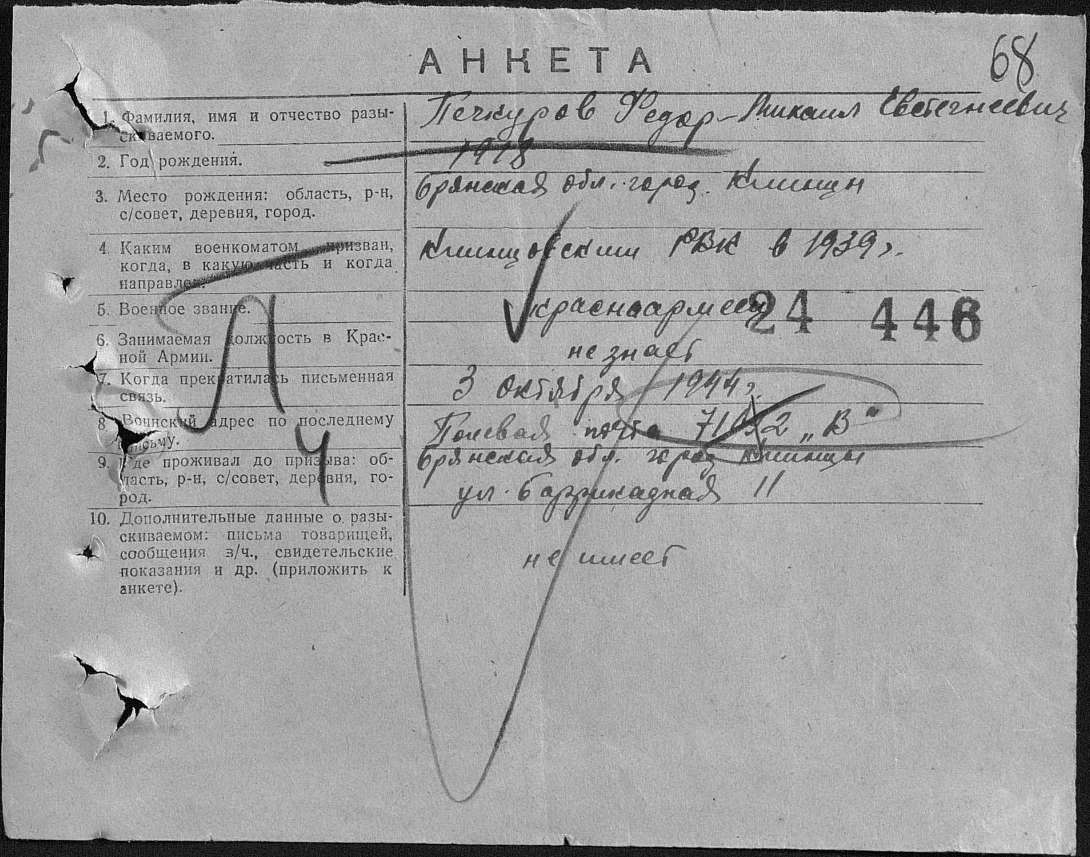 68
АНКЕТА
1. Фамилия, имя и отчество разыскиваемого.
Печкуров Федор-Михаил Евстегнеевич
2. Год рождения.
1918
3. Место рождения: область, р-н, с/совет, деревня, город.
Брянская обл. город Клинцы
4. Каким военкоматом призван, когда, в какую часть и когда направлен.
Клинцовским РВК в 1939 г.
5. Военное звание.
Красноармеец
24 446
6. Занимаемая должность в Красной Армии.
не знает
7. Когда прекратилась письменная связь.
3 октября 1944 г.
8. Воинский адрес по последнему письму.
Полевая почта "В"
9. Где проживал до призыва: область, р-н, с/совет, деревня, город.
Брянская обл. город Клинцы
ул. Баррикадная 11
10. Дополнительные данные о разыскиваемом: письма товарищей, сообщения з/ч., свидетельские показания и др. (приложить к анкете).
не имеет